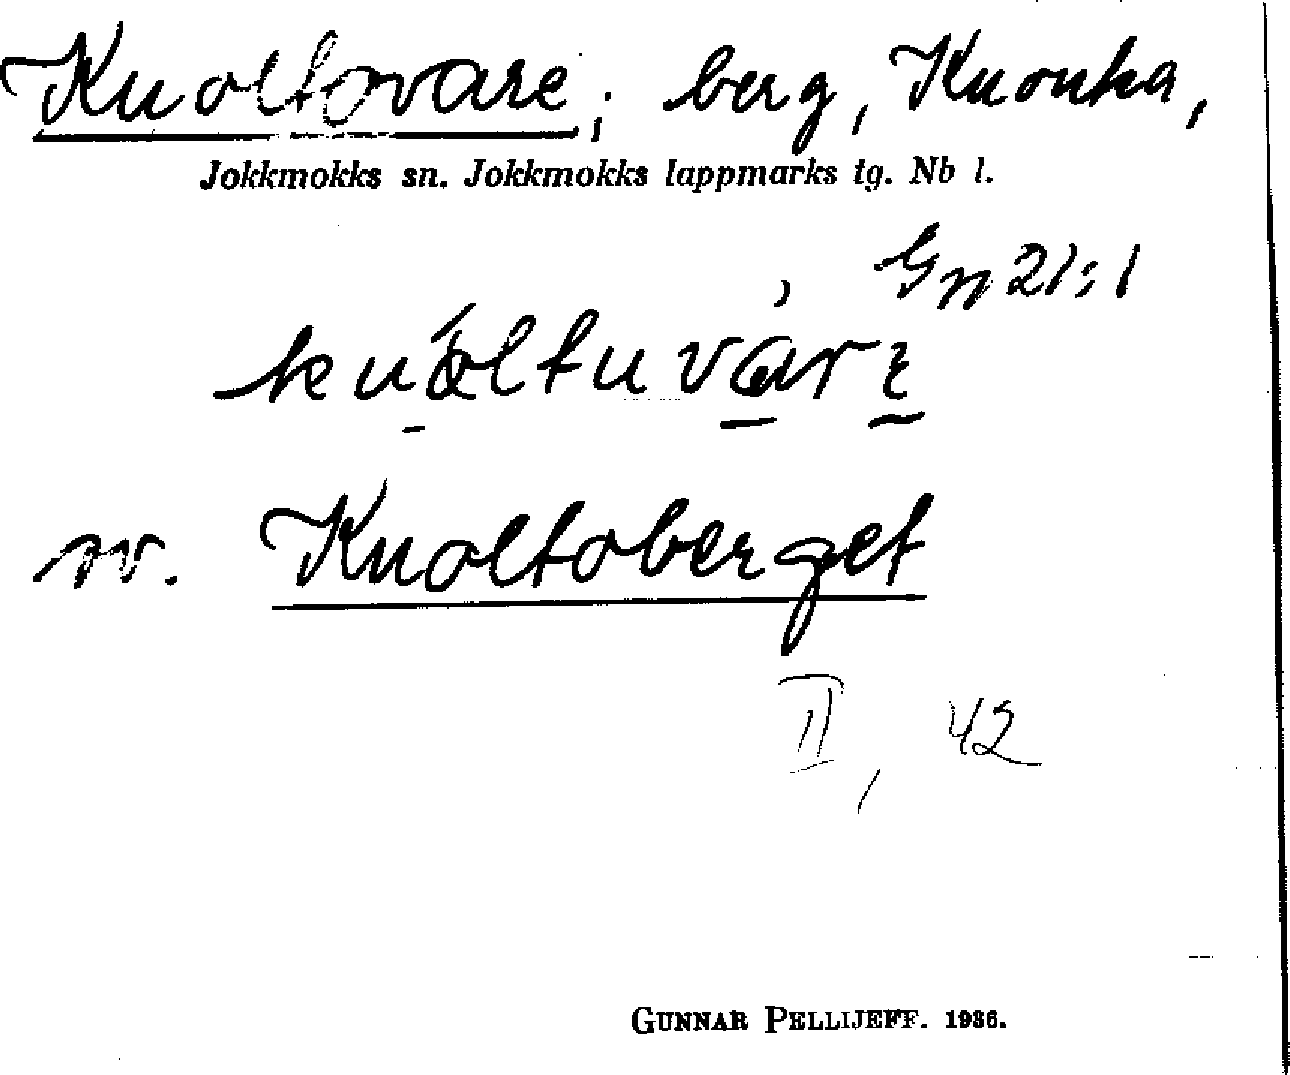 Kuoltovare; berg, Kuouka,
Jokkmokks sn. Jokkmokks lappmarks tg. Nb l.
Gn 21:1
kuoltuvàrɛ
sv. Kuoltoberget
II, 42
GUNNAR PELLIJEFF. 1936.